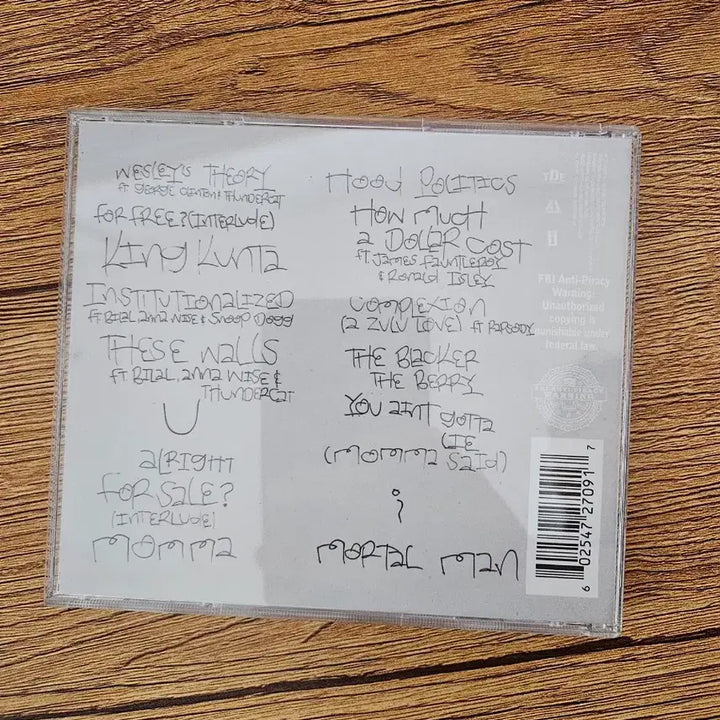 WESLEY'S THEORY
FT GEORGE CLINTON & THUNDERCAT
FOR FREE? (INTERLUDE)
KING KUNTA
INSTITUTIONALIZED
FT BILAL, ANNA WISE & SNOOP DOGG
THESE WALLS
FT BILAL, ANNA WISE &
THUNDERCAT
U
ALRIGHT
FOR SALE?
(INTERLUDE)
MOMMA
HOOD POLITICS
HOW MUCH
A DOLLAR COST
FT JAMES FAUNTLEROY
& RONALD ISLEY
COMPLEXION
(A ZULU LOVE) FT RAPSODY
THE BLACKER
THE BERRY
YOU AINT GOTTA
LIE
(MOMMA SAID)
i
MORTAL MAN
TDE
FBI Anti-Piracy
Warning:
Unauthorized
copying is
punishable under
federal law.
6 02547 27091 7